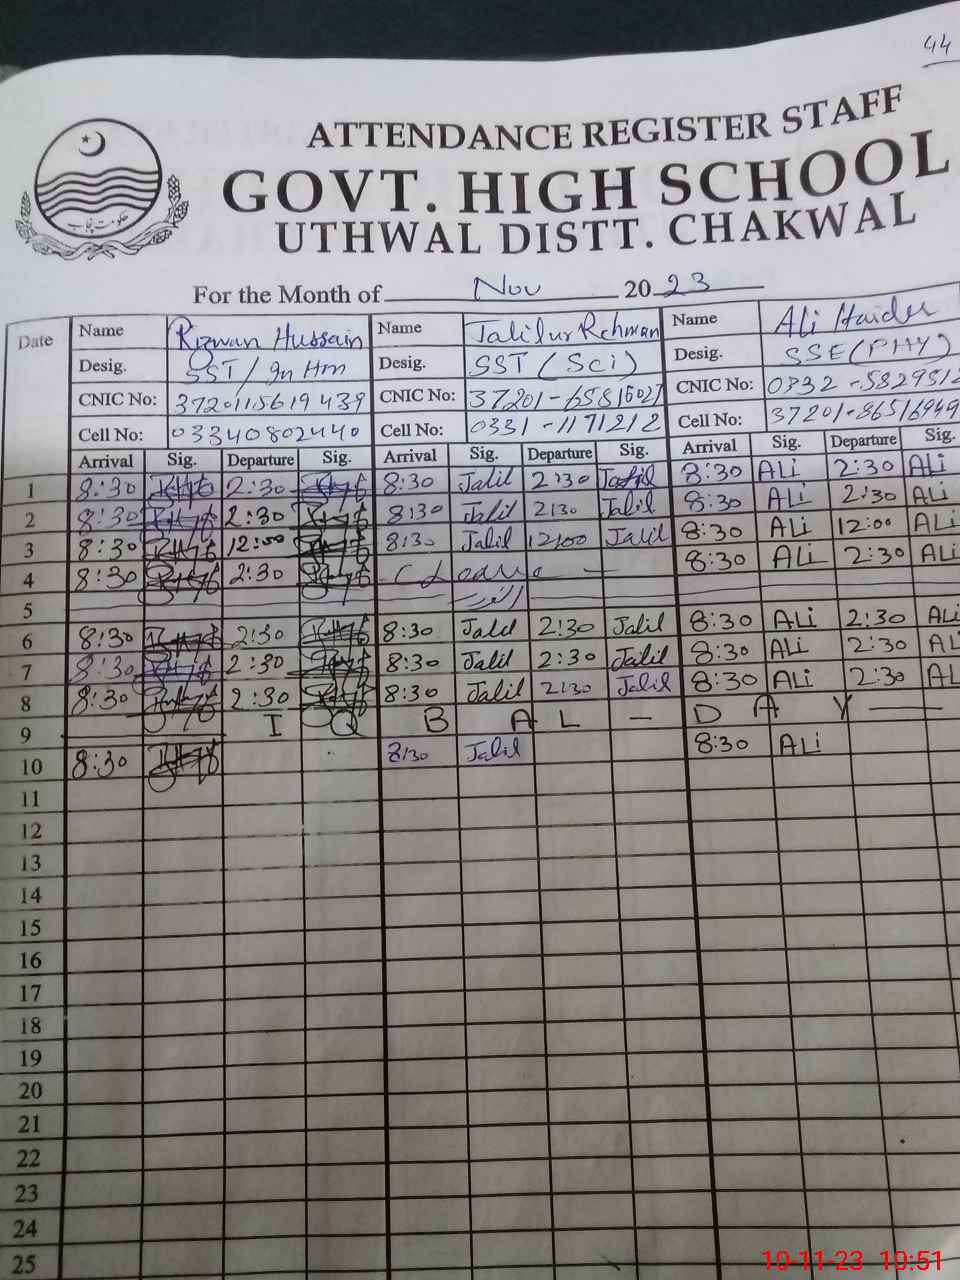 44
ATTENDANCE REGISTER STAFF
GOVT. HIGH SCHOOL
UTHWAL DISTT. CHAKWAL
حکومت پنجاب
For the Month of Nov 2023
Date Name Rizwan Hussain Name Jalil ur Rehman Name Ali Haider
Desig. SST/ In Hm Desig. SST (Sci) Desig. SSE (PHY)
CNIC No: 3720115619439 CNIC No: 37201-65815027 CNIC No: 0332-5829512
Cell No: 03340802440 Cell No: 0331-1171212 Cell No: 37201-86516949
Arrival Sig. Departure Sig. Arrival Sig. Departure Sig. Arrival Sig. Departure Sig.
1 8:30 2:30 8:30 Jalil 2:30 Jalil 8:30 ALi 2:30 ALi
2 8:30 2:30 8:30 Jalil 2:30 Jalil 8:30 ALi 2:30 ALi
3 8:30 12:00 8:30 Jalil 12:00 Jalil 8:30 ALi 12:00 ALi
4 8:30 2:30 8:30 ALi 2:30 ALi
5
6 8:30 2:30 8:30 Jalil 2:30 Jalil 8:30 ALi 2:30 ALi
7 8:30 2:30 8:30 Jalil 2:30 Jalil 8:30 ALi 2:30 ALi
8 8:30 2:30 8:30 Jalil 2:30 Jalil 8:30 ALi 2:30 ALi
9 I Q B A L - D A Y
10 8:30 8:30 Jalil 8:30 ALi
11
12
13
14
15
16
17
18
19
20
21
22
23
24
25
10-11-23 10:51